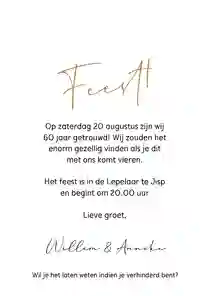 Feest!
Op zaterdag 20 augustus zijn wij
60 jaar getrouwd! Wij zouden het
enorm gezellig vinden als je dit
met ons komt vieren.
Het feest is in de Lepelaar te Jisp
en begint om 20.00 uur
Lieve groet,
Willem & Anneke
Wil je het laten weten indien je verhinderd bent?